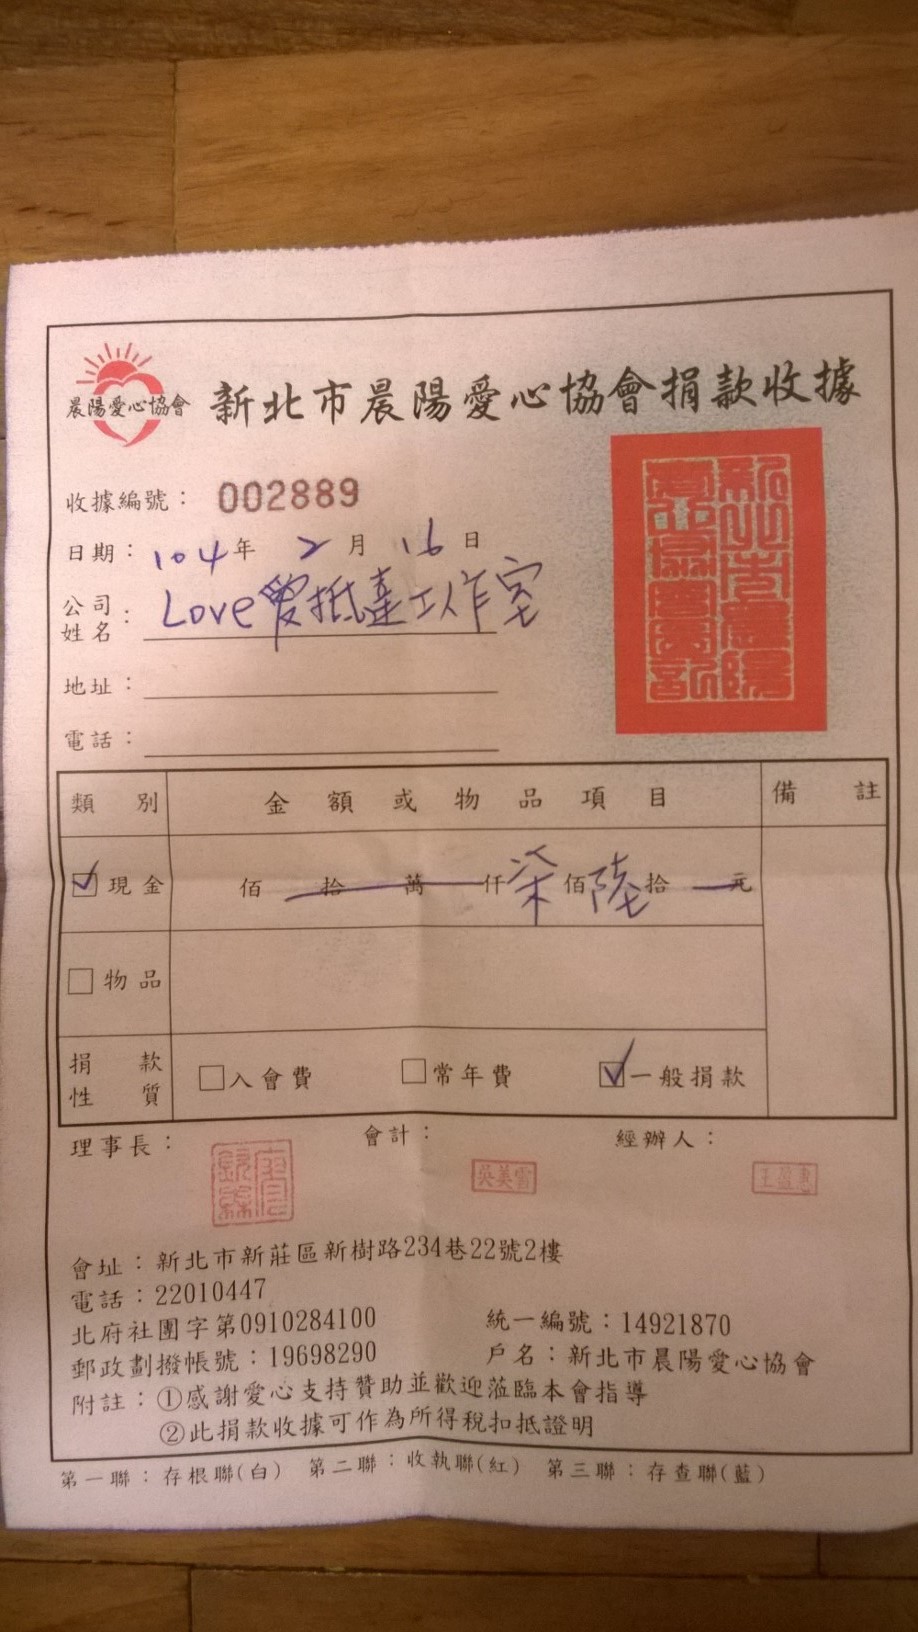 晨陽愛心協會
新北市晨陽愛心協會捐款收據
收據編號：002889
日期：104年 2月 16日
公司姓名：Love愛抵達工作室
地址：
電話：
類別 金額或物品項目 備註
現金 佰拾萬仟柒佰陸拾元
物品
捐款性質 入會費 常年費 一般捐款
理事長： 會計： 經辦人：
吳美雪 王盈惠
會址：新北市新莊區新樹路234巷22號2樓
電話：22010447
北府社團字第0910284100 統一編號：14921870
郵政劃撥帳號：19698290 戶名：新北市晨陽愛心協會
附註：①感謝愛心支持贊助並歡迎蒞臨本會指導
②此捐款收據可作為所得稅扣抵證明
第一聯：存根聯(白) 第二聯：收執聯(紅) 第三聯：存查聯(藍)